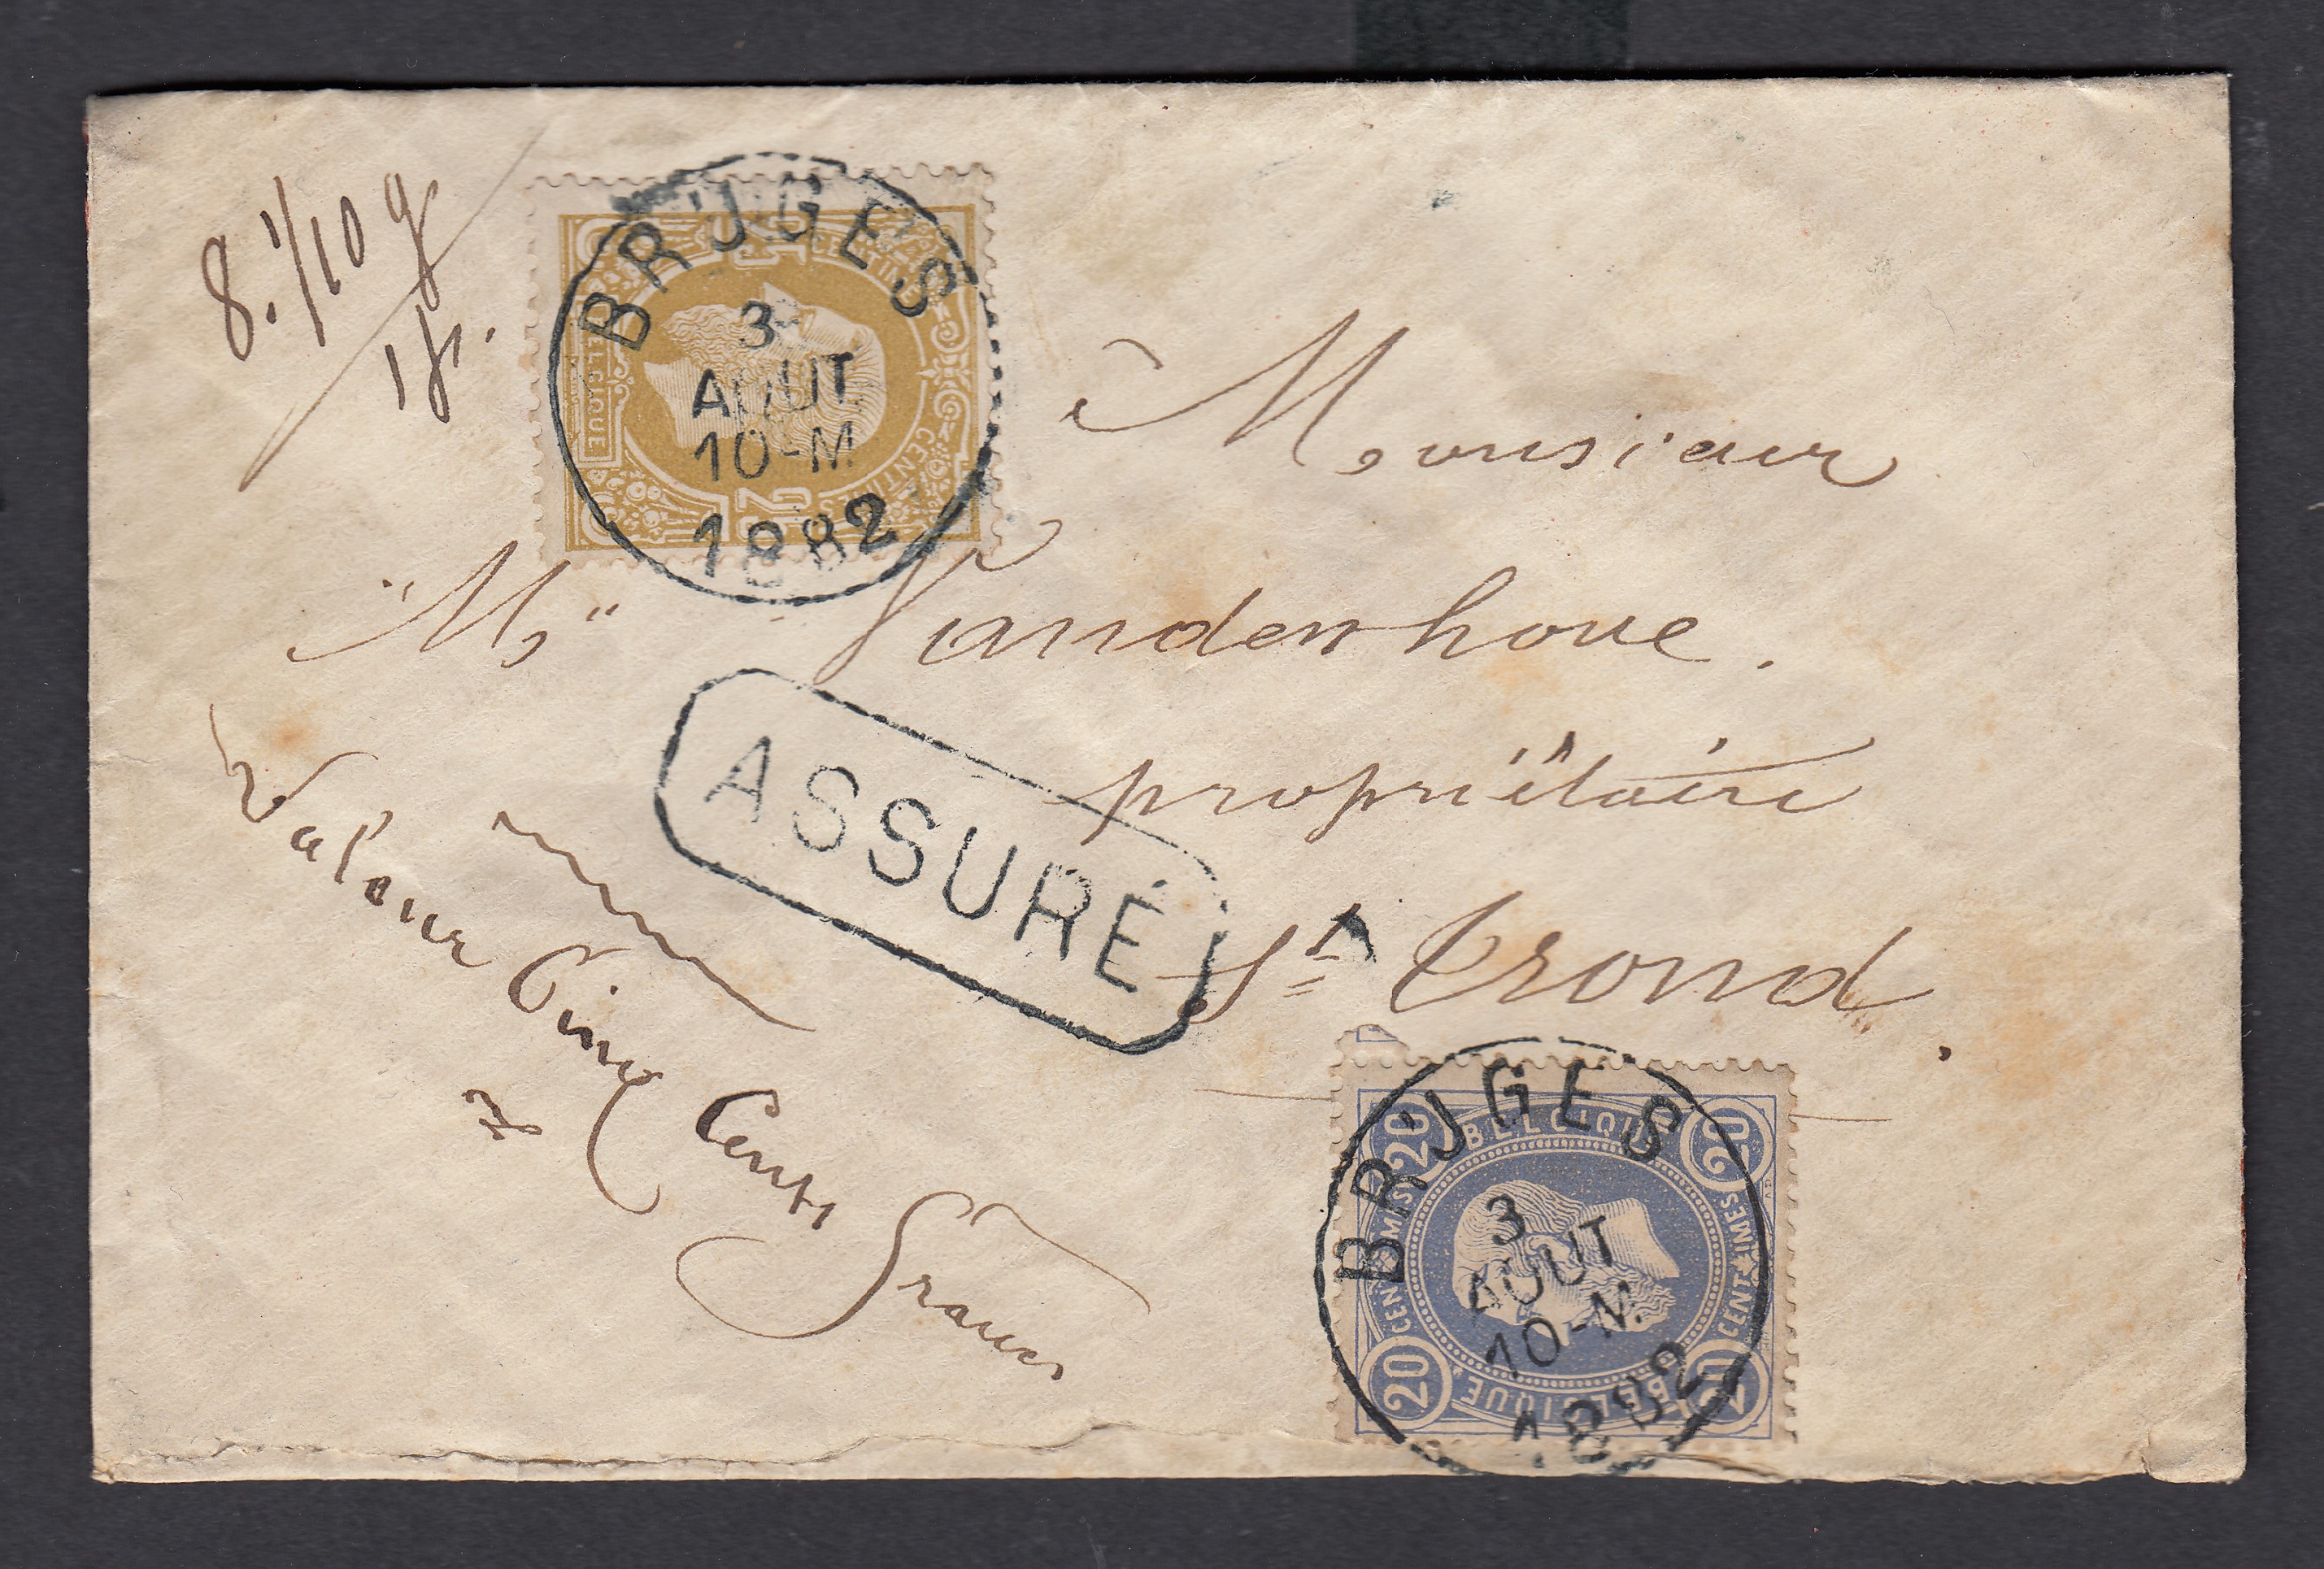 8. 1/10 g
BRÜGES
3
AOUT
10-M
1882
25 CENTIMES
BELGIQUE
CENTIMES 25
Monsieur
"M" Vandenhove.
propriétaire
St Trond.
ASSURÉ
Valeur Cinq Cents Francs
BRÜGES
3
AOUT
10-M
1882
20 BELGIQUE 20
CENTIMES
CENTIMES
20 BELGIQUE 20